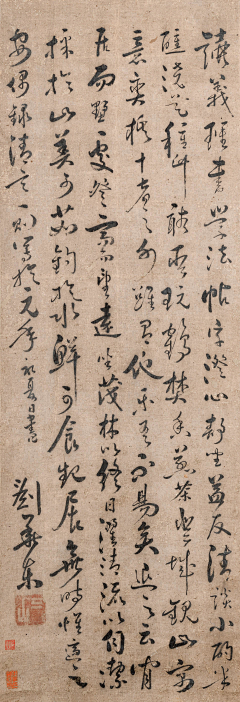 讀義理書學法帖字澄心靜坐益友清談小酌半
醺澆花種竹聽琴玩鶴焚香煮茶登城觀山寓
意奕棋十者之外雖有他樂吾不易矣退之云窮
居而野處登高而望遠坐茂林以終日濯清流以自潔
採於山美可茹釣於水鮮可食起居無時惟適之
安偶錄清言一則寫於 夏日書
劉華東